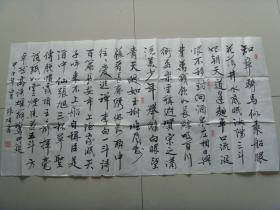 知章騎馬似乘船眼
花落井水底眠汝陽三斗
始朝天道逢麴車口流涎
恨不移封向酒泉左相日興
費萬錢飲如長鯨吸百川
銜杯樂聖稱避賢宗之瀟
灑美少年舉觴白眼望
青天皎如玉樹臨風前
蘇晉長齋繡佛前醉中
往往愛逃禪李白一斗詩
百篇長安市上酒家眠天
子呼來不上船自稱臣是
酒中仙張旭三杯草聖
傳脫帽露頂王公前揮毫
落紙如雲煙焦遂五斗方
卓然高談雄辯驚四筵